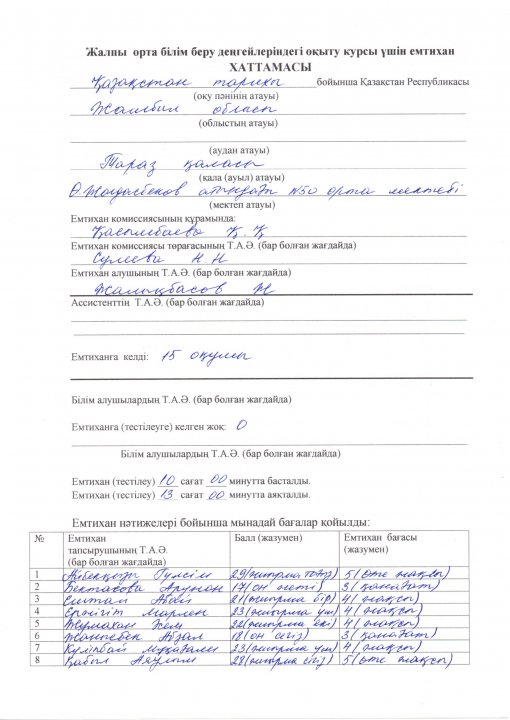 Жалпы орта білім беру деңгейлеріндегі оқыту курсы үшін емтихан
ХАТТАМАСЫ
Қазақстан тарихы бойынша Қазақстан Республикасы
(оқу пәнінің атауы)
Жамбыл облысы
(облыстың атауы)
(аудан атауы)
Тараз қаласы
(қала (ауыл) атауы)
Ө.Жолдасбеков атындағы №50 орта мектебі
(мектеп атауы)
Емтихан комиссиясының құрамында:
Қасымбаева Қ. Қ
Емтихан комиссиясы төрағасының Т.А.Ә. (бар болған жағдайда)
Сулеева Н. Н
Емтихан алушының Т.А.Ә. (бар болған жағдайда)
Жалықбасов М
Ассистенттің Т.А.Ә. (бар болған жағдайда)
Емтиханға келді: 15 оқушы
Білім алушылардың Т.А.Ә. (бар болған жағдайда)
Емтиханға (тестілеуге) келген жоқ: 0
Білім алушылардың Т.А.Ә. (бар болған жағдайда)
Емтихан (тестілеу) 10 сағат 00 минутта басталды.
Емтихан (тестілеу) 13 сағат 00 минутта аяқталды.
Емтихан нәтижелері бойынша мынадай бағалар қойылды:
№ Емтихан тапсырушының Т.А.Ә. (бар болған жағдайда) Балл (жазумен) Емтихан бағасы (жазумен)
1 Айбекқызы Гүлсім 29(жиырма тоғыз) 5(өте жақсы)
2 Бектасова Аружан 17(он жеті) 3(қанағат)
3 Абай 21(жиырма бір) 4(жақсы)
4 Ернигіт Марлен 23(жиырма үш) 4(жақсы)
5 Жумахан 22(жиырма екі) 4(жақсы)
6 Жәнібек Абзал 18(он сегіз) 3(қанағат)
7 Құлпбай Мұқағали 23(жиырма үш) 4(жақсы)
8 Қабыл Аяулым 28(жиырма сегіз) 5(өте жақсы)